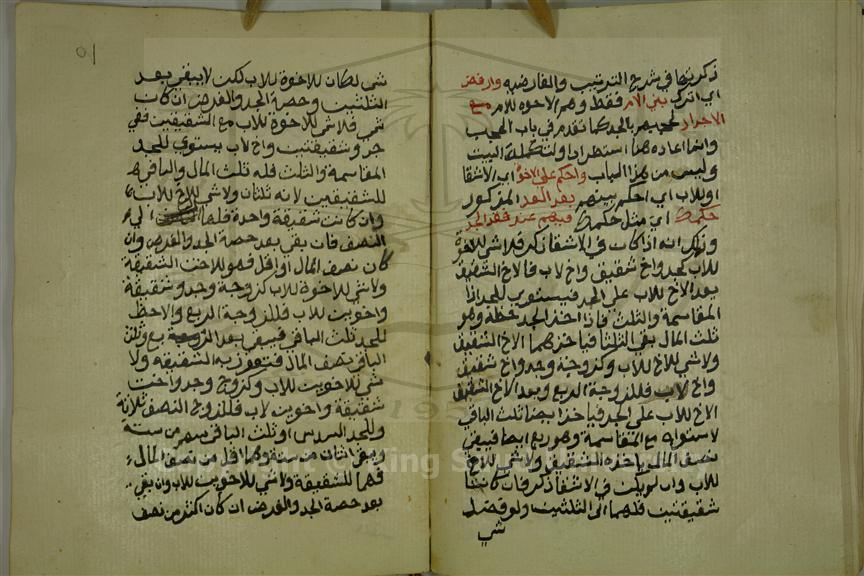 ذكرتها في شرح الترتيب والفارضيه وارفض
اي اترك بني الام فقط وهم الاخوه للام مع
الاجداد لحجبهم بالجد كما تقدم في باب الحجب
وانما اعاده هنا استطرادا ولتكملة البيت
وليس من هذا الباب واحكم على الاخوة اي الاشقا
او للاب اي احكم بينهم بعد العد المذكور
حكمك اي مثل حكمك فيهم عند فقد الجد
وذلك انه اذا كان في الاشقا ذكر فلا شي للاخوة
للاب كجد واخ شقيق واخ لاب فالاخ الشقيق
يعد الاخ للاب على الجد فيستوي للجد اذا
المقاسمة والثلث فاذا اخذ الجد حظه وهو
ثلث المال بقي الثلثا فياخذهما الاخ الشقيق
ولا شي للاخ للاب وكزوجة وجد واخ شقيق
واخ لاب فللزوجة الربع ويعد الاخ الشقيق
الاخ للاب على الجد فياخذ ايضا ثلث الباقي
لاستوائه مع المقاسمة وهو ربع ايضا فيبقى
نصف المال ياخذه الشقيق ولا شي للاخ
للاب وان لم يكن في الاشقا ذكر فان كانتا
شقيقتين فلهما الى الثلثين ولو فضل
شي
٥١
شي لكان للاخوة للاب لكن لا يبقى بعد
الثلثين وحصة الجد والفرض ان كان
شي فلا شي للاخوة للاب مع الشقيقين ففي
جد وشقيقتين واخ لاب يستوي للجد
المقاسمة والثلث فله ثلث المال والباقي
للشقيقتين لانه ثلثان ولا شي للاخ للاب
وان كانت شقيقة واحدة فلها الى
النصف فان بقي بعد حصة الجد والفرض وان
كان نصف المال او اقل فهو للاخت الشقيقة
ولا شي للاخوة للاب كزوجة وجد وشقيقة
واخوين للاب فللزوجة الربع والاحظ
للجد ثلث الباقي فيبقى بعد الربع وثلث
الباقي نصف المال فتفوز به الشقيقة ولا
شي للاخوين للاب وكزوج وجد واخت
شقيقة واخوين لاب فللزوج النصف ثلاثة
وللجد السدس او ثلث الباقي سهم من ستة
ويبقى اثنان من ستة وهما اقل من نصف المال
فهما للشقيقة ولا شي للاخوين للاب وان بقي
بعد حصة الجد والفرض ان كان اكثر من نصف
Copyright © King Saud University
1957